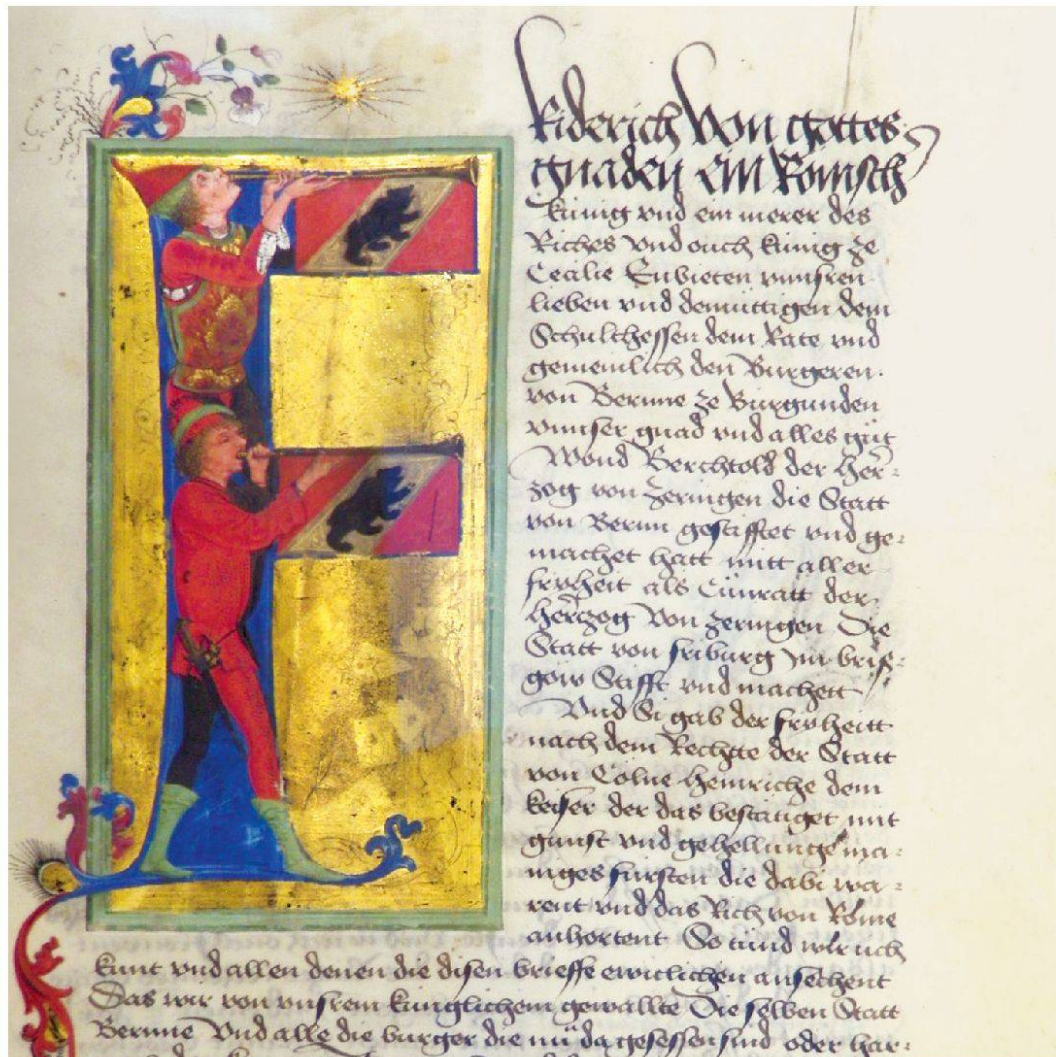 Friderich Von gottes
gnaden ein Romsch
kúnig vnd ein merer des
Riches vnd ouch kúnig ze
Cecilie Enbieten vnnsren
lieben vnd demúttigen dem
Schulthessen dem Rate vnd
gemeinlich den Burgeren
von Bernne ze Burgunden
vnnser gnad vnd alles gút
Wond Berchtold der Her=
zog von Zeringen die Statt
von Bernn gestifftet vnd ge=
machet hatt mitt aller
fryheit als Cúnratt der
Hertzog von Zeringen Die
Statt von friburg Im bris=
gow Stifft vnd machett
Vnd Si gab der fryheitt
nach dem Rechtte der Statt
von Cólne Heinriche dem
keiser der das bestátiget mit
gunst vnd gehellunge ma=
niges fúrsten die dabi wa=
rent vnd das Rich von Róme
anhortent So túnd wir úch
kunt vnd allen denen die disen brieffe ewiclichen ansechent
Das wir von vnsrem kúnglichem gewallte Die selben Statt
Bernne Vnd alle die burger die nú da gesessen sind oder har=